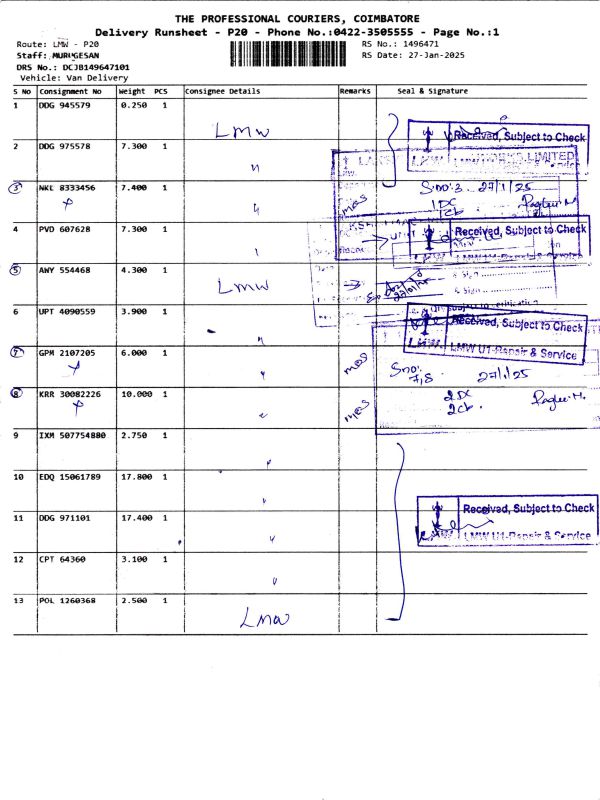 THE PROFESSIONAL COURIERS, COIMBATORE
Delivery Runsheet - P20 - Phone No.:0422-3505555 - Page No.:1
Route: LMW - P20
RS No.: 1496471
Staff: MURUGESAN
RS Date: 27-Jan-2025
DRS No.: DCJB149647101
Vehicle: Van Delivery
S No Consignment No Weight PCS Consignee Details Remarks Seal & Signature
1 DDG 945579 0.250 1 LMW
Received, Subject to Check
2 DDG 975578 7.300 1 "
3 NKL 8333456 7.400 1 "
S.no:3. 27/1/25
1 DC
4 PVD 607628 7.300 1 "
Received, Subject to Check
LMW U1-Repair & Service
5 AWY 554468 4.300 1 LMW
6 UPT 4090559 3.900 1 "
Received, Subject to Check
LMW U1-Repair & Service
7 GPM 2107205 6.000 1 "
S.no: 7,8. 27/1/25
8 KRR 30082226 10.000 1 "
2 DC
9 IXM 507754880 2.750 1 "
10 EDQ 15061789 17.800 1 "
11 DDG 971101 17.400 1 "
Received, Subject to Check
LMW U1-Repair & Service
12 CPT 64360 3.100 1 "
13 POL 1260368 2.500 1 LMW